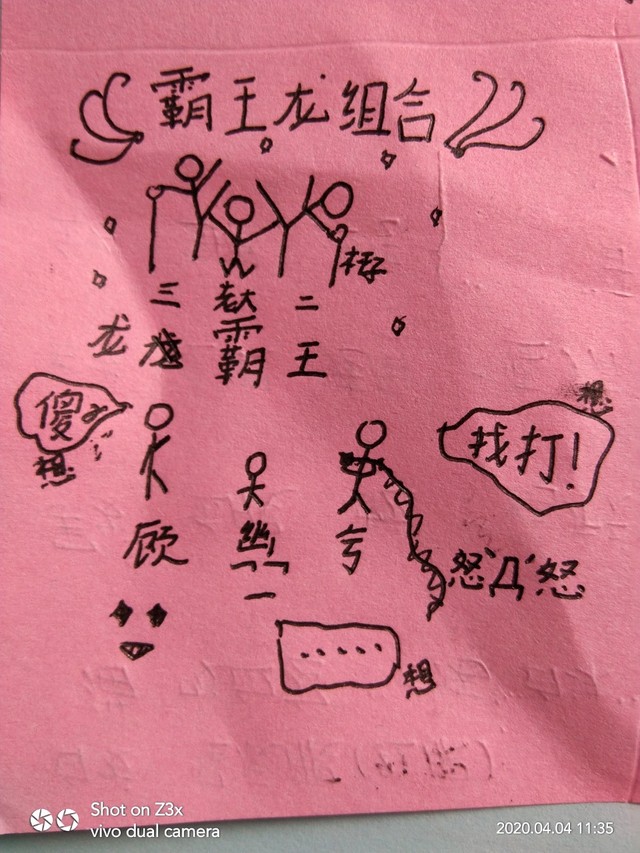 霸王龙组合
棒
三 老大 二
龙 霸 王
傻
想
想
找打!
顾 幽 亏
一
怒'Д'怒
.....
想
Shot on Z3x
vivo dual camera
2020.04.04 11:35